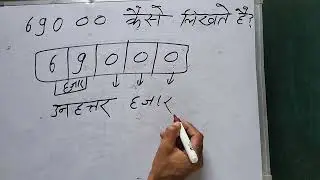 69000 कैसे लिखते है?
6 9 0 0 0
हजार
उनहत्तर हजार